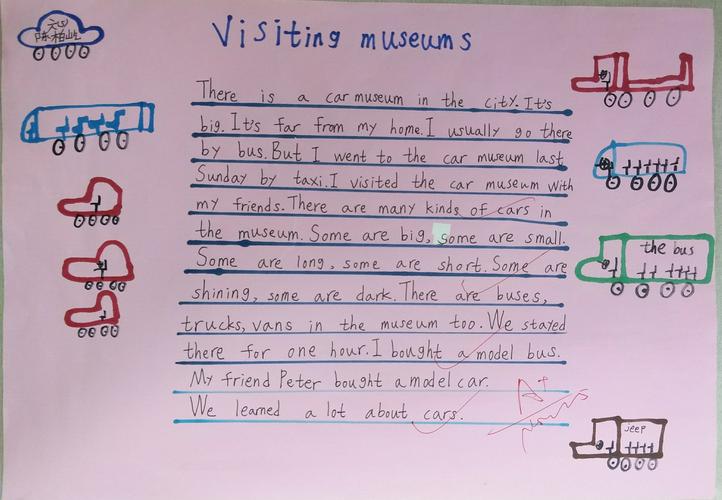 六(4)
陈柏屹
Visiting museums
There is a car museum in the city. It's
big. It's far from my home. I usually go there
by bus. But I went to the car museum last
Sunday by taxi. I visited the car museum with
my friends. There are many kinds of cars in
the museum. Some are big, some are small.
Some are long, some are short. Some are
shining, some are dark. There are buses,
trucks, vans in the museum too. We stayed
there for one hour. I bought a model bus.
My friend Peter bought a model car.
We learned a lot about cars.
A+
the bus
jeep